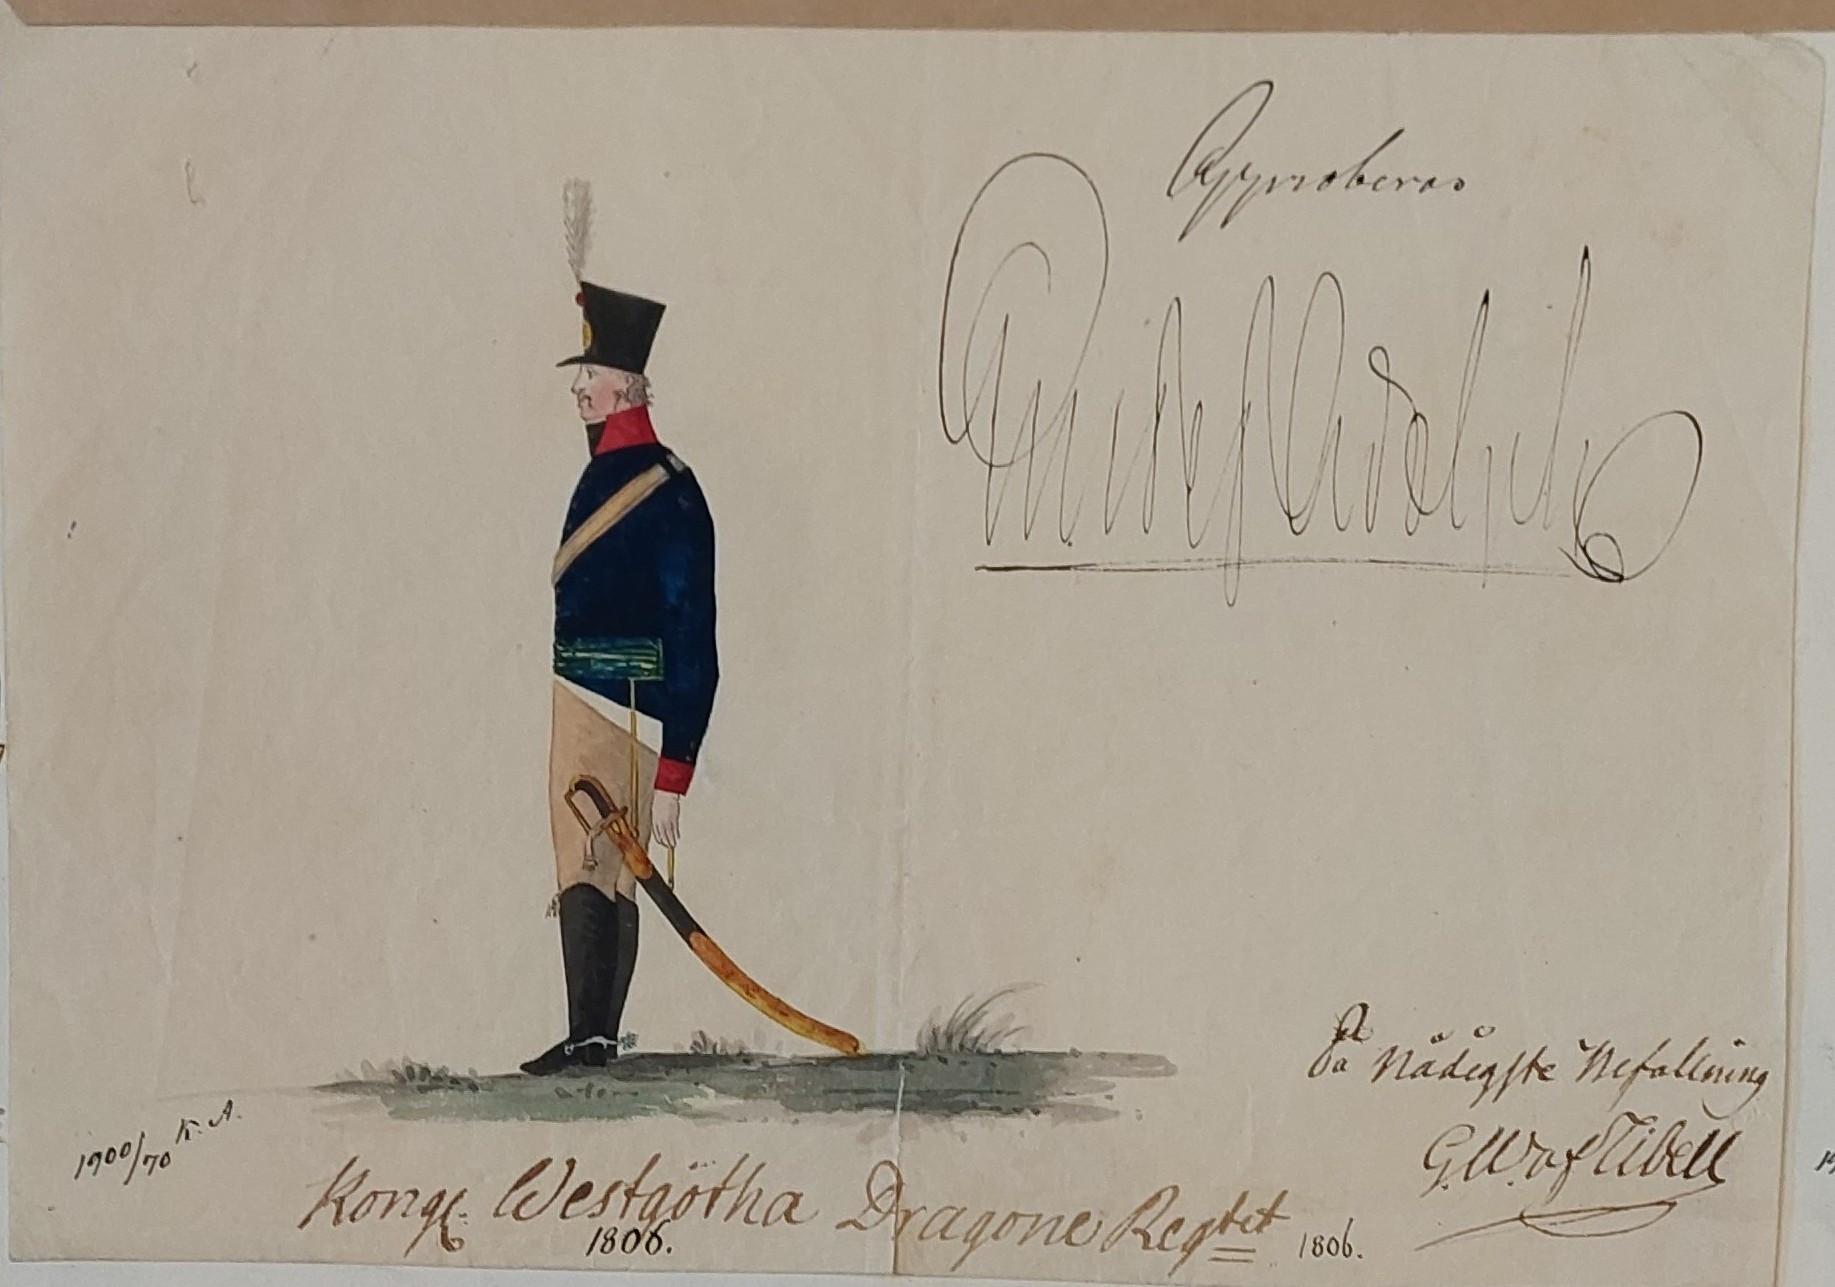 Approberas
Gustaf Adolph
På Nådigste Befallning
G.W. af Tibell
1900/70 K. A.
Kongl. Westgötha Dragone Regtet
1806. 1806.